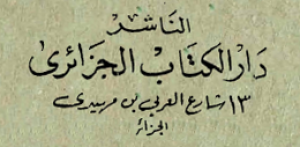 الناشر
دار الكتاب الجزائرى
١٣ شارع العربي بن مهيدى
الجزائر